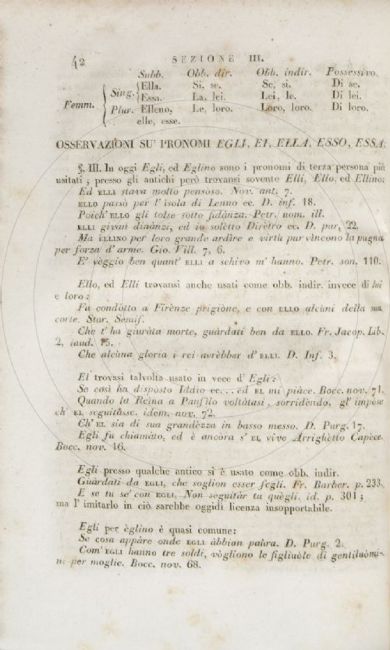 42 SEZIONE III.
Subb. Obb. dir. Obb. indir. Possessivo.
Femm. Sing. Ella. Si, se. Se, si. Di se.
Essa. La, lei. Lei, le. Di lei.
Plur. Elleno, Le, loro. Loro, loro. Di loro.
elle, esse.
OSSERVAZIONI SU' PRONOMI EGLI, EI, ELLA, ESSO, ESSA.
§. III. In oggi Egli, ed Eglino sono i pronomi di terza persona più
usitati; presso gli antichi però trovansi sovente Elli, Ello, ed Ellino:
Ed ELLA stava molto pensoso. Nov. ant. 7.
ELLO passò per l'isola di Lenno ec. D. inf. 18.
Poich' ELLO gli tolse sotto fidànza. Petr. nom. ill.
ELLI givan dinànzi, ed io solètto Dirètro ec. D. pur, 22.
Ma ELLINO per loro grande ardìre e virtù pur vìncono la pugna
per forza d'arme. Gio. Vill. 7, 6.
E' vèggio ben quant' ELLI a schivo m' hanno. Petr. son. 110.
Ello, ed Elli trovansi anche usati come obb. indir. invece di lui
e loro:
Fu condòtto a Firènze prigiòne, e con ELLO alcùni della sua
corte. Stor. Semif.
Che t' ha giuràta morte, guàrdati ben da ELLO. Fr. Jacop. Lib.
2, laud. 15.
Che alcùna gloria i rei avrèbbar d'ELLI. D. Inf. 3.
Ei trovasi talvolta usato in vece d' Egli:
Se così ha dispòsto Iddìo ec... ed EL mi piàce. Bocc. nov. 71.
Quando la Reìna a Panfilo voltàtasi, sorridèndo, gl' impòse
ch' EL seguitàsse. idem. nov. 72.
Ch' EL sia di sua grandèzza in basso messo. D. Purg. 17.
Egli fu chiamàto, ed è ancòra s' EL vive Arrighètto Capèce.
Bocc. nov. 16.
Egli presso qualche antico si è usato come obb. indir.
Guàrdati da EGLI, che soglion esser fegli. Fr. Barber. p. 233.
E se tu se' con EGLI, Non seguitàr tu quègli. id. p. 301;
ma l' imitarlo in ciò sarebbe oggidì licenza insopportabile.
Egli per èglino è quasi comune:
Se cosa appàre onde EGLI àbbian paùra. D. Purg. 2.
Com' EGLI hanno tre soldi, vògliono le figliuòle di gentiluòmi-
ni per moglie. Bocc. nov. 68.